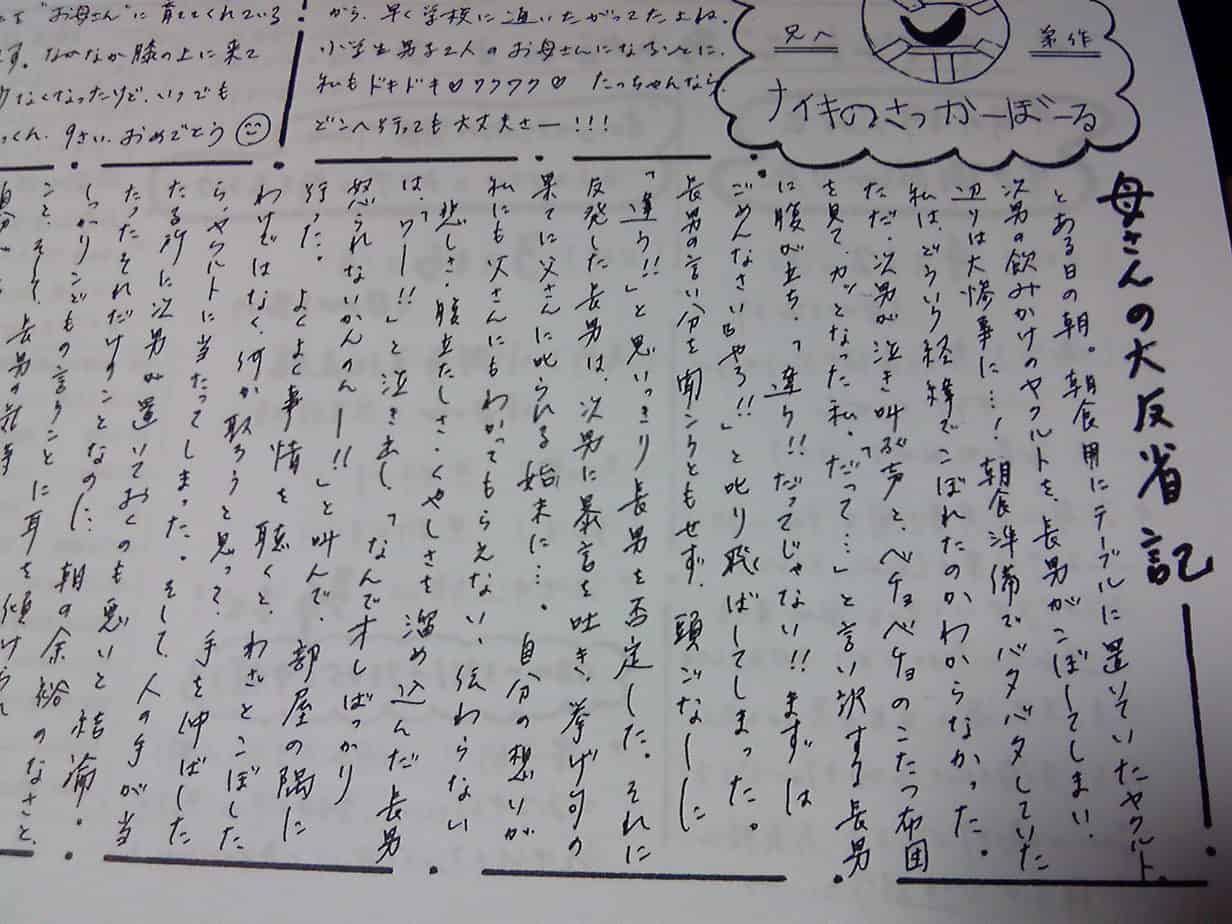 "お母さん"に育ててくれている
す。なかなか膝の上に来て
少なくなったけど、いつでも
っくん、9さい、おめでとう
から、早く学校に通いたがってたよね。
小学生男子2人のお母さんになることに、
私もドキドキ♡ワクワク♡ たっちゃんなら、
どこへ行っても大丈夫さー!!!
兄へ
弟作
ナイキのさっかーぼーる
母さんの大反省記
とある日の朝。朝食用にテーブルに置いていたヤクルト。
次男の飲みかけのヤクルトを、長男がこぼしてしまい、
辺りは大惨事に…！朝食準備でバタバタしていた
私は、どういう経緯でこぼれたのかわからなかった。
ただ、次男が泣き叫ぶ声と、ベチョベチョのこたつ布団
を見て、カッとなった私。「だって…」と言い訳する長男
に腹が立ち、「違う!!だってじゃない!!まずは
ごめんなさいやろ!!」と叱り飛ばしてしまった。
長男の言い分を聞こうともせず、頭ごなしに
「違う!!」と思いっきり長男を否定した。それに
反発した長男は、次男に暴言を吐き、挙げ句の
果てに父さんに叱られる始末に…。自分の想いが
私にも父さんにもわかってもらえない、伝わらない
悲しさ・腹立たしさ・くやしさを溜め込んだ長男
は、「ワー!!」と泣き出し、「なんでオレばっかり
怒られないかんのんー!!」と叫んで、部屋の隅に
行った。 よくよく事情を聴くと、わざとこぼした
わけではなく何か取ろうと思って、手を伸ばした
ら、ヤクルトに当たってしまった。そして、人の手が当
たる所に次男が置いておくのも悪いと結論。
たったそれだけのことなのに、朝の余裕のなさと、
しっかり子どもの言うことに耳を傾けられ
こと、そして、長男の気持